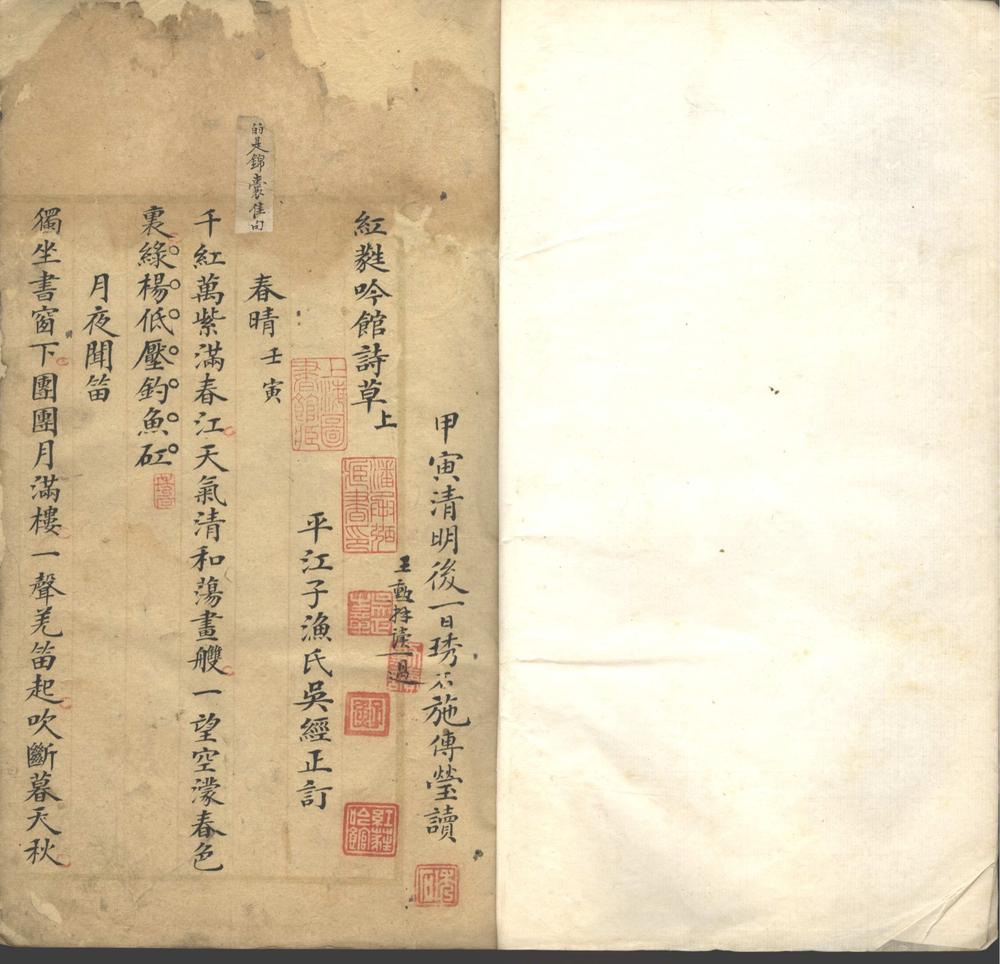 甲寅清明後一日琇石施傳瑩讀
王
讀一過
紅蕤吟館詩草上
平江子漁氏吳經正訂
春晴壬寅
的是錦囊佳句
千紅萬紫滿春江天氣清和蕩畫艭一望空濛春色
裏綠楊低壓釣魚矼
月夜聞笛
獨坐書窗下團團月滿樓一聲羌笛起吹斷暮天秋
上海圖書館臧
潘承弼臧書印
紅蕤吟館